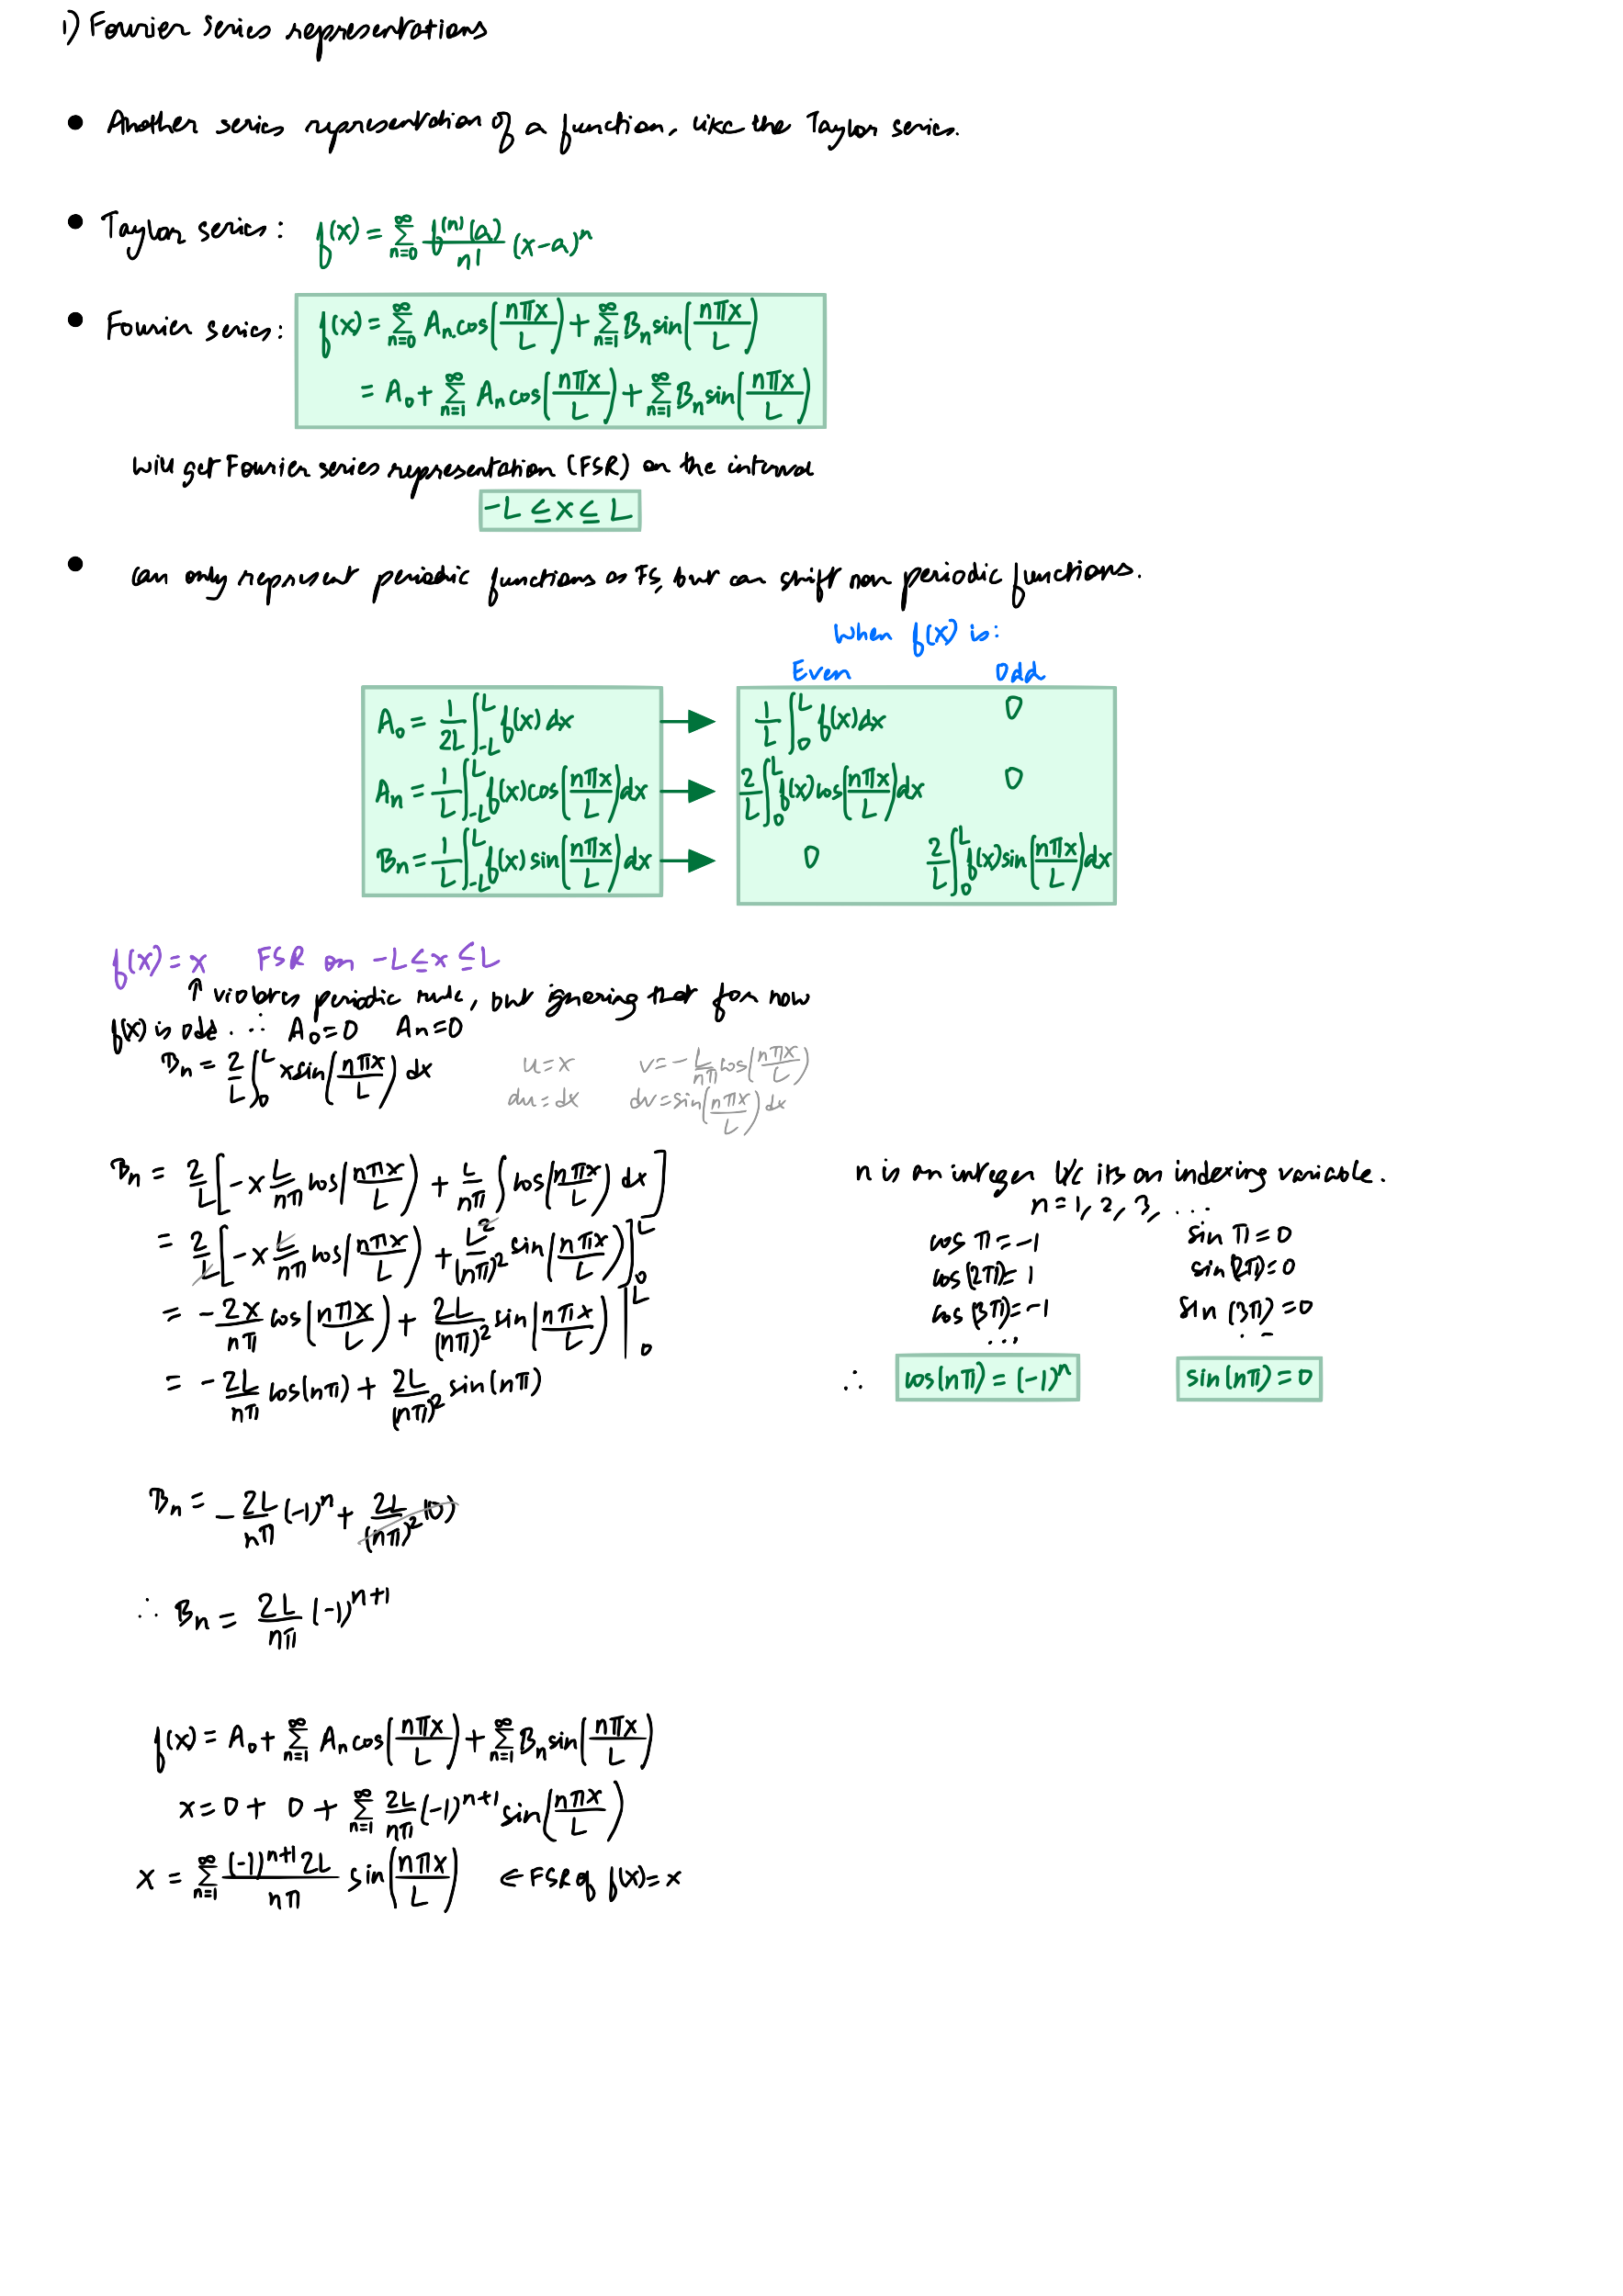 1) Fourier series representations
• Another series representation of a function, like the Taylor series.
• Taylor series: f(x) = ∑_{n=0}^{∞} f^{(n)}(a)/n! (x-a)^n
• Fourier series: f(x) = ∑_{n=0}^{∞} A_n cos(nπx/L) + ∑_{n=1}^{∞} B_n sin(nπx/L)
= A_0 + ∑_{n=1}^{∞} A_n cos(nπx/L) + ∑_{n=1}^{∞} B_n sin(nπx/L)
will get Fourier series representation (FSR) on the interval
-L ≤ x ≤ L
• can only represent periodic functions as FS, but can shift non periodic functions.
When f(x) is:
Even Odd
A_0 = 1/2L ∫_{-L}^{L} f(x) dx → 1/L ∫_0^L f(x)dx 0
A_n = 1/L ∫_{-L}^{L} f(x)cos(nπx/L)dx → 2/L ∫_0^L f(x)cos(nπx/L)dx 0
B_n = 1/L ∫_{-L}^{L} f(x)sin(nπx/L)dx → 0 2/L ∫_0^L f(x)sin(nπx/L)dx
f(x) = x FSR on -L ≤ x ≤ L
↑ violates periodic rule, but ignoring that for now
f(x) is odd. ∴ A_0 = 0 A_n = 0
B_n = 2/L ∫_0^L x sin(nπx/L) dx u = x v = -L/nπ cos(nπx/L)
du = dx dv = sin(nπx/L) dx
B_n = 2/L [-x L/nπ cos(nπx/L) + L/nπ ∫ cos(nπx/L) dx]
= 2/L [-x L/nπ cos(nπx/L) + L^2/(nπ)^2 sin(nπx/L)]_0^L
= -2x/nπ cos(nπx/L) + 2L/(nπ)^2 sin(nπx/L) |_0^L
= -2L/nπ cos(nπ) + 2L/(nπ)^2 sin(nπ)
n is an integer b/c its an indexing variable.
n = 1, 2, 3, ...
cos π = -1 sin π = 0
cos(2π) = 1 sin(2π) = 0
cos(3π) = -1 sin(3π) = 0
... ...
∴ cos(nπ) = (-1)^n sin(nπ) = 0
B_n = -2L/nπ (-1)^n + 2L/(nπ)^2 (0)
∴ B_n = 2L/nπ (-1)^{n+1}
f(x) = A_0 + ∑_{n=1}^{∞} A_n cos(nπx/L) + ∑_{n=1}^{∞} B_n sin(nπx/L)
x = 0 + 0 + ∑_{n=1}^{∞} 2L/nπ (-1)^{n+1} sin(nπx/L)
x = ∑_{n=1}^{∞} (-1)^{n+1} 2L/nπ sin(nπx/L) ← FSR of f(x) = x